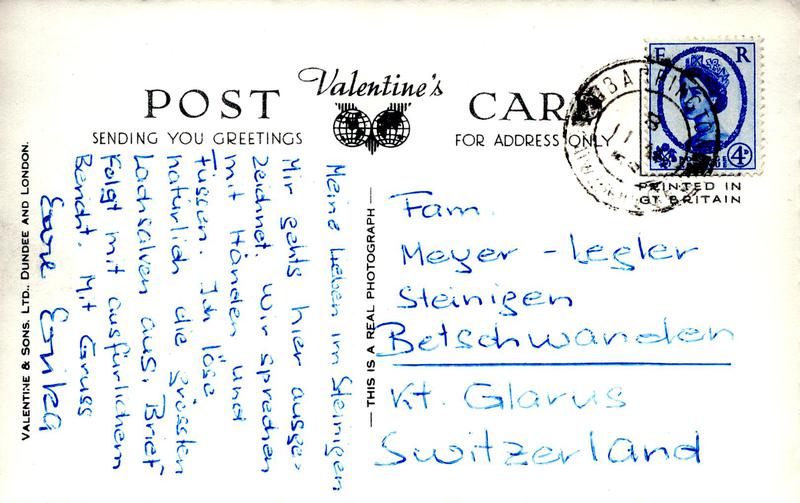 POST
Valentine's
CARD
SENDING YOU GREETINGS
FOR ADDRESS ONLY
E R
4D
PRINTED IN
GT BRITAIN
VALENTINE & SONS, LTD., DUNDEE AND LONDON.
— THIS IS A REAL PHOTOGRAPH —
Meine Lieben im Steinigen
Mir gehts hier ausge-
zeichnet. Wir sprechen
mit Händen und
Füssen. Ich löse
natürlich die grössten
Lachsalven aus. Brief
folgt mit ausfürlichem
Bericht. Mit Gruss
Eure Erika
Fam.
Meyer - Legler
Steinigen
Betschwanden
Kt. Glarus
Switzerland